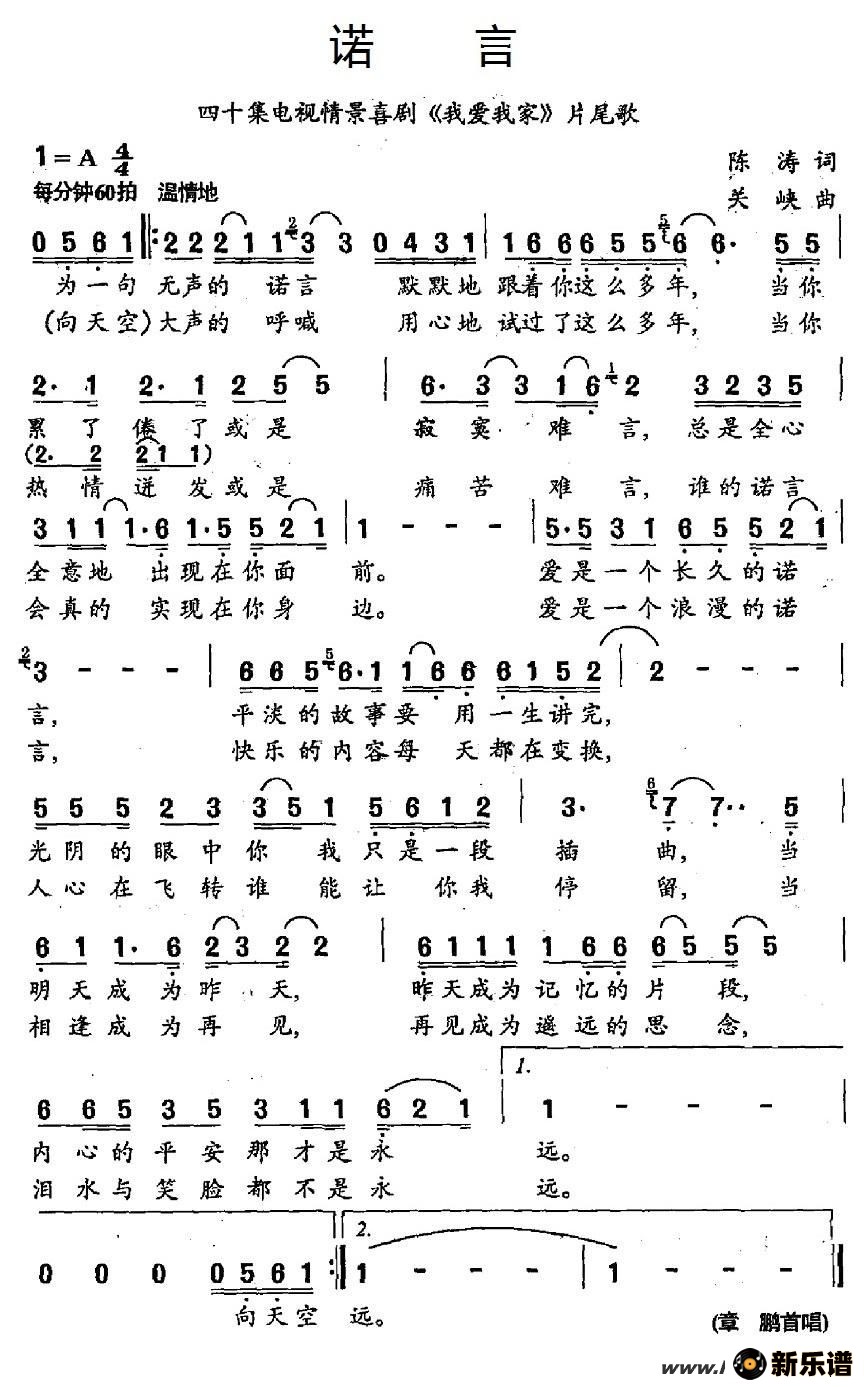 诺 言
四十集电视情景喜剧《我爱我家》片尾歌
1=A 4/4
陈 涛 词
每分钟60拍 温情地
关 峡 曲
0 5 6 1 ‖: 2 2 2 2 1 1 2 3 3 0 4 3 1 | 1 6 6 6 5 5 5 6 6· 5 5 |
为一句 无声的 诺言 默默地 跟着你这么多年, 当你
(向天空)大声的 呼喊 用心地 试过了这么多年, 当你
2· 1 2· 1 2 5 5 | 6· 3 3 1 6 1 2 3 2 3 5
累了倦了或是 寂寞 难言, 总是全心
(2· 2 2 1 1)
热情迸发或是 痛苦 难言, 谁的诺言
3 1 1 1· 6 1· 5 5 2 1 | 1 - - - | 5· 5 3 1 6 5 5 2 1 |
全意地 出现在你面 前。 爱是一个长久的诺
会真的 实现在你身 边。 爱是一个浪漫的诺
2 3 - - - | 6 6 5 5 6· 1 1 6 6 6 1 5 2 | 2 - - -
言, 平淡的故事要 用一生讲完,
言, 快乐的内容每 天都在变换,
5 5 5 2 3 3 5 1 5 6 1 2 | 3· 6 7 7·· 5
光阴的眼中你 我只是一段 插 曲, 当
人心在飞转谁 能让 你我 停 留, 当
6 1 1· 6 2 3 2 2 | 6 1 1 1 1 6 6 6 5 5 5
明天成为昨 天, 昨天成为记忆的片 段,
相逢成为再 见, 再见成为遥远的思 念,
1.
6 6 5 3 5 3 1 1 6 2 1 | 1 - - -
内心的平安那才是永 远。
泪水与笑脸都不是永 远。
2.
0 0 0 0 5 6 1 :‖ 1 - - - | 1 - - - ‖
向天空 远。
(章 鹏首唱)
www.
新乐谱